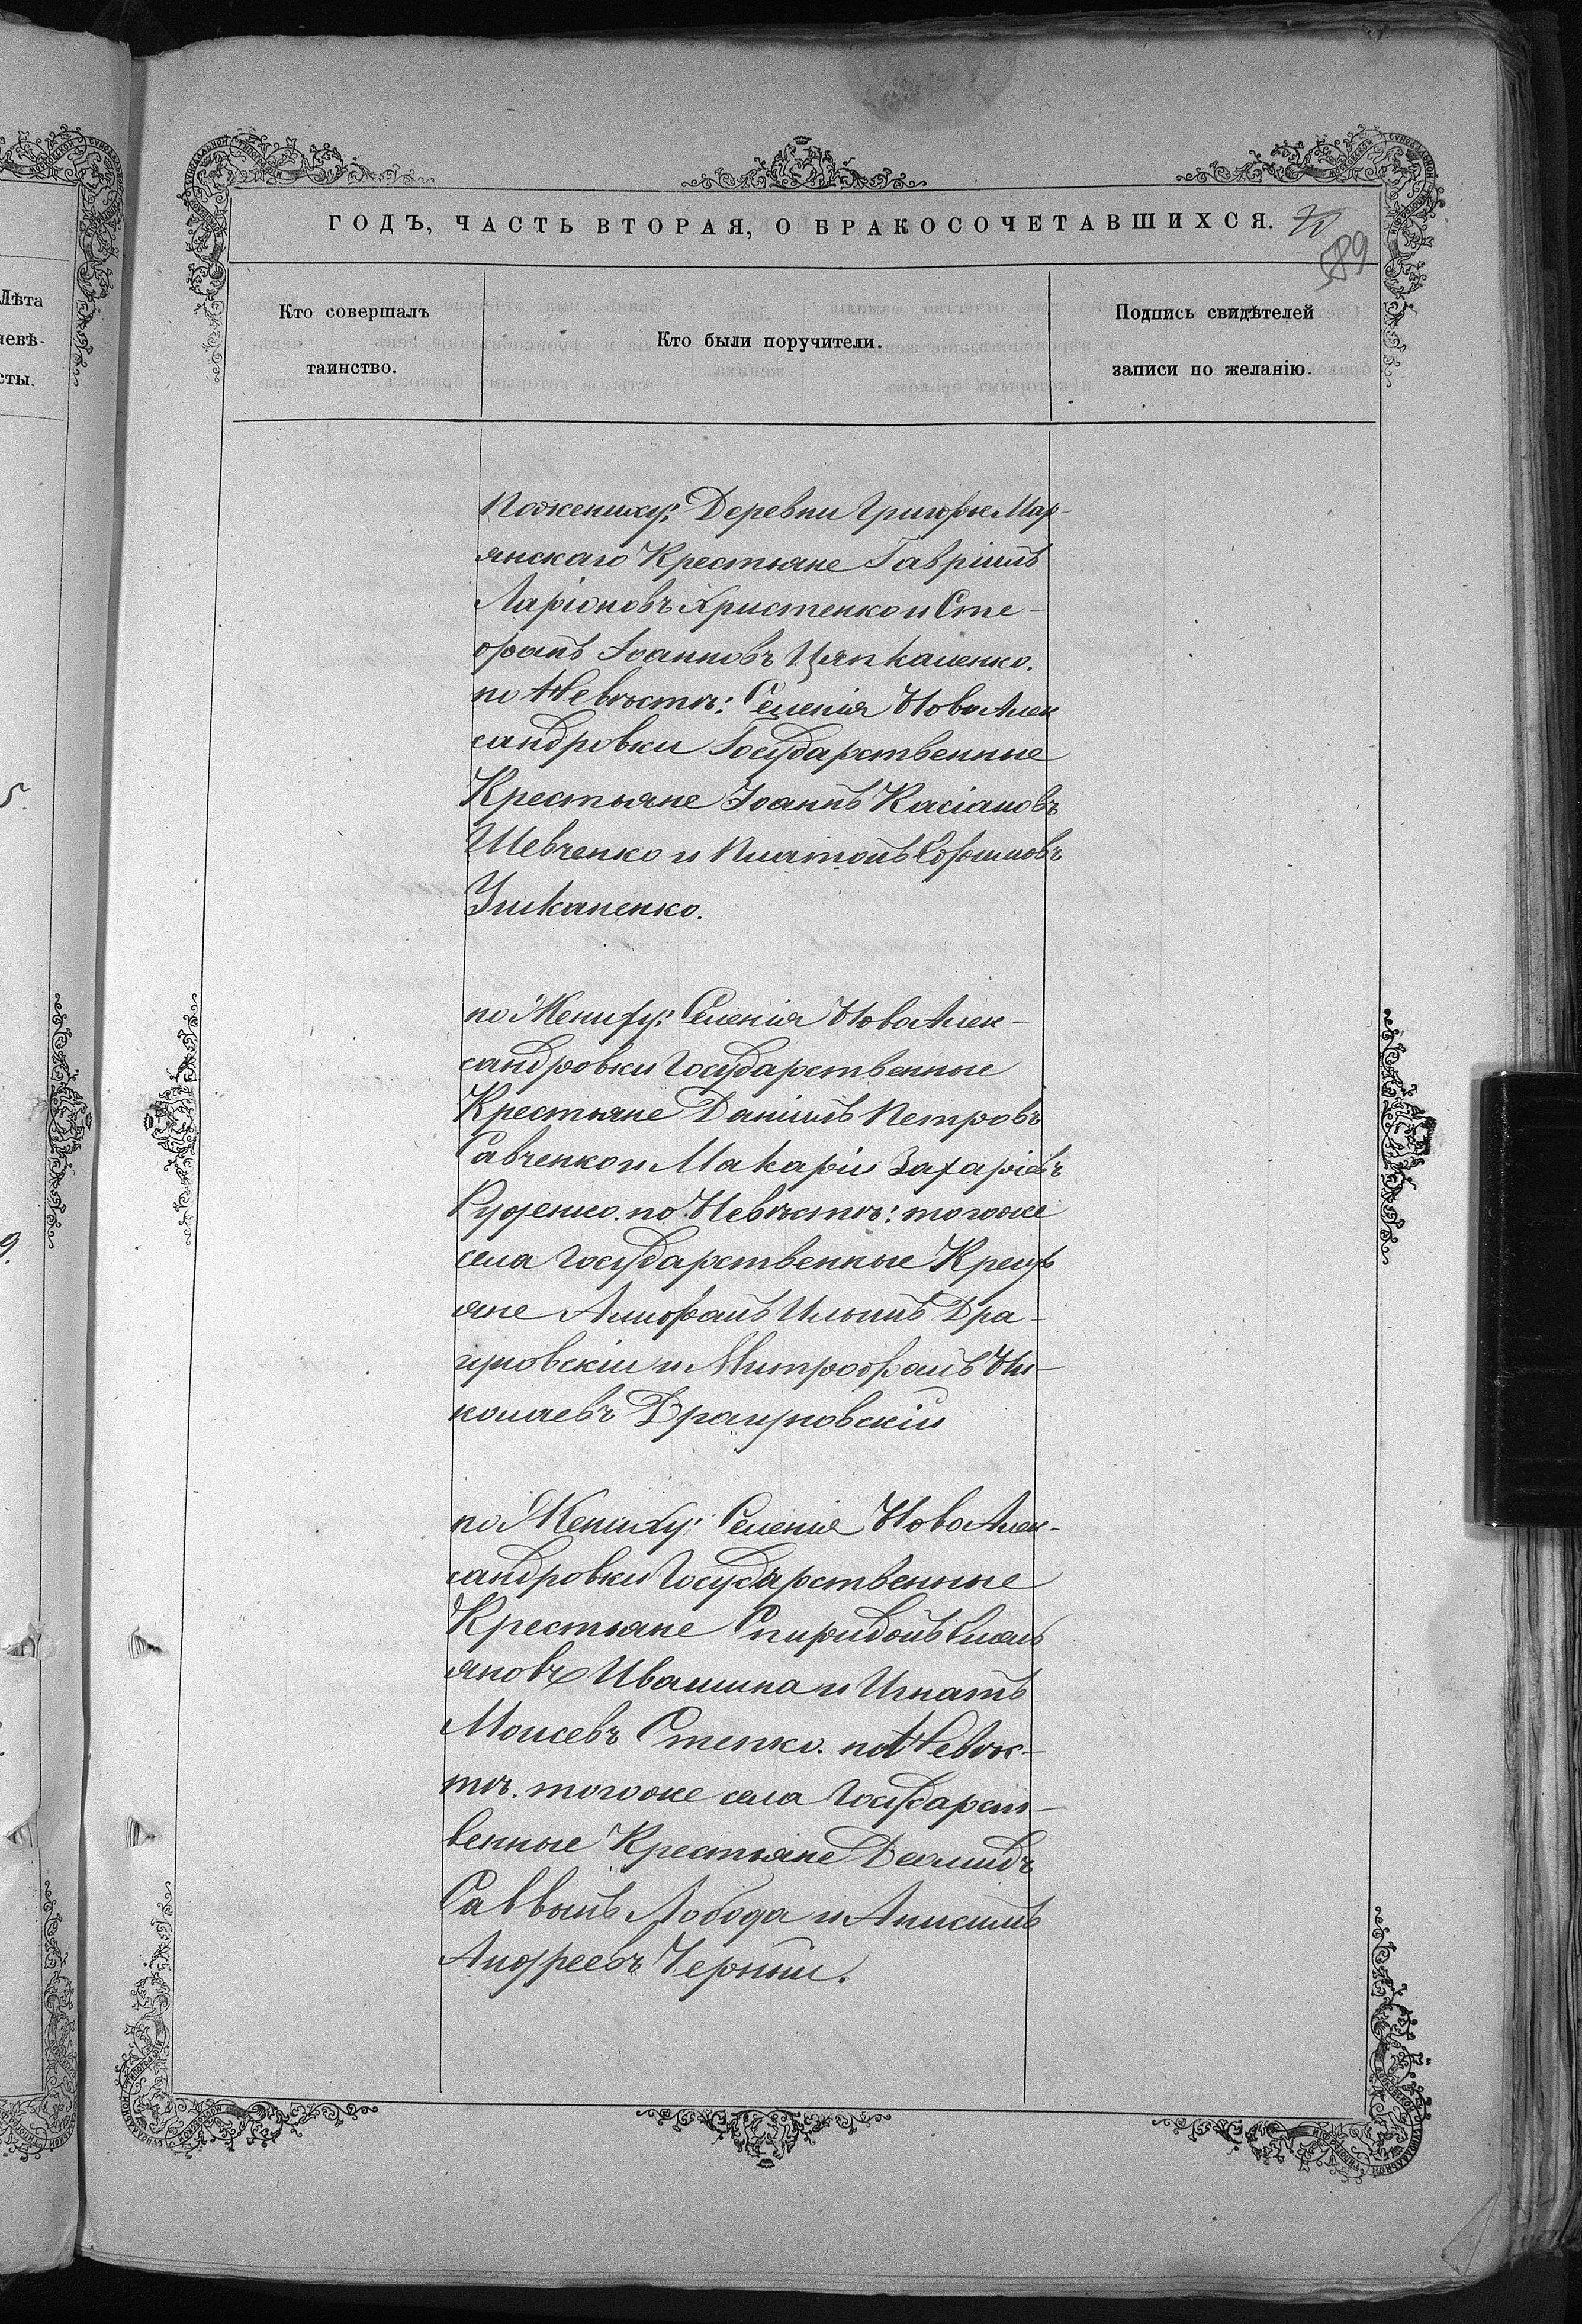 ГОДЪ, ЧАСТЬ ВТОРАЯ, О БРАКОСОЧЕТАВШИХСЯ.
589
Лѣта
невѣ-
сты.
Кто совершалъ
таинство.
Кто были поручители.
Подпись свидѣтелей
записи по желанію.
По жениху: Деревни Григорье Мар-
янскаго Крестьяне Гавріилъ
Ларіоновъ Христенко и Сте-
фанъ Іоанновъ Цапкаленко.
по Невѣстѣ: Селенія Ново Алек
сандровки Государственные
Крестьяне Іоаннъ Касіановъ
Шевченко и Платонъ
по Жениху: Селенія Ново Алек-
сандровки Государственные
Крестьяне Даніилъ Петровъ
Савченко и Макарій Захаріевъ
Руденко. по Невѣстѣ: того же
села Государственные Крест
яне Ильинъ Дра-
гуновскій и Митрофанъ Ни-
колаевъ Драгуновскій
по Жениху: Селенія Ново Алек-
сандровки Государственные
Крестьяне Спиридонъ Емель
яновъ Ивашина и Игнатъ
Моисевъ Стенко. по Невѣс-
тѣ. того же села Государст-
венные Крестьяне Демидъ
Саввинъ Лобода и Анисимъ
Андреевъ Черный.
5.
9.